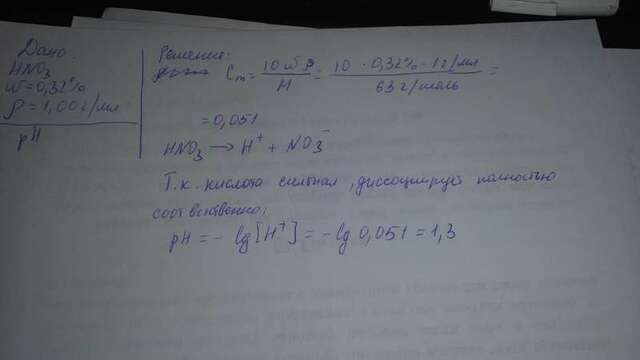 Дано:
HNO3
W=0,32%
ρ=1,00 г/мл
pH
Решение:
Cm = 10 ω ρ / M = 10 · 0,32% · 1 г/мл / 63 г/моль =
= 0,051
HNO3 → H+ + NO3-
Т.к. кислота сильная, диссоциирует полностью
соотвественно:
pH = - lg [H+] = - lg 0,051 = 1,3